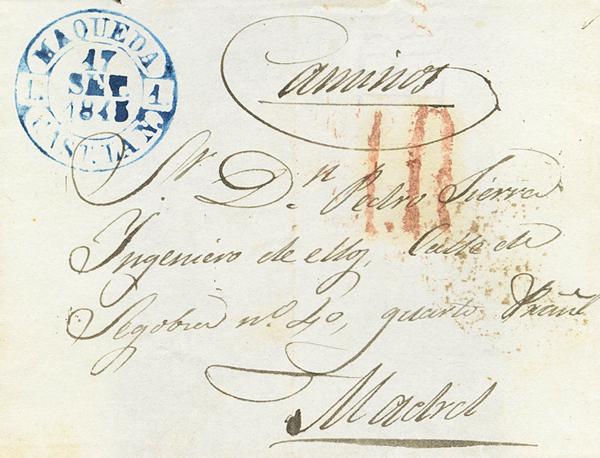 MAQUEDA
17
SET.
1845
1 1
CAST.LA N.
Caminos
1.R
Sr. Dn. Pedro Sierra
Ingeniero de ellos, Calle de
Segobia nº. 40, quarto
Madrid